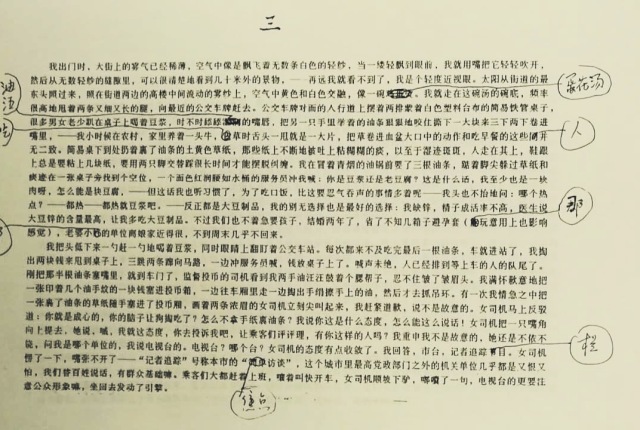 三
我出门时，大街上的雾气已经稀薄，空气中像是飘飞着无数条白色的轻纱，当一缕轻飘到眼前，我就用嘴把它轻轻吹开，
然后从无数轻纱的缝隙里，可以很清楚地看到几十米外的景物，——再远我就看不到了，我是个轻度近视眼。太阳从街道的最
东头照过来，照在街道两边的高楼中间流动的雾纱上，空气中黄色和白色交融，像一碗
蛋花汤
我就走在这碗汤的碗底，频率
很高地甩着两条又细又长的腿，向最近的公交车牌赶去。公交车牌对面的人行道上摆着两排蒙着白色塑料台布的简易铁管桌子，
很多男女老少趴在桌子上喝着豆浆，时不时
的嘴唇，把另一只手里举着的油条狠狠地咬住撕下一大块来三下两下卷进
嘴里，——我小时候在农村，家里养着一头牛，
草时舌头一甩就是一大片，把草卷进血盆大口中的动作和吃早餐的这些
人
无二致。简易桌下到处扔着裹了油条的土黄色草纸，那些纸上不断地被吐上粘糊糊的痰，以至于湿迹斑斑，人走在其上，鞋跟
上总是要粘上几块纸，要用两只脚交替踩很长时间才能摆脱纠缠。我在冒着青烟的油锅前要了三根油条，踮着脚尖躲过草纸和
痰迹在一张桌子旁找到个空位，一个面色红润腰如水桶的服务员冲我喊：你是豆浆还是老豆腐？这是什么话，我至少也是一块
肉呀，怎么能是块豆腐，——但这话我也听习惯了，为了吃口饭，比这要忍气吞声的事情多着呢——我头也不抬地问：哪个热
点？——都热——都热就豆浆吧。——反正都是大豆制品，我的别无选择也是最好的选择：我缺锌，精子成活率不高，医生说
大豆锌的含量最高，让我多吃大豆制品。不过我们也不着急要孩子，结婚两年了，省了不知几箱子避孕套（
那
玩意用上也影响
感觉），老婆小
的单位离娘家近得很，不到周末不回来。
我把头低下来一勺赶一勺地喝着豆浆，同时眼睛上翻盯着公交车站。每次都来不及吃完最后一根油条，车就进站了，我掏
出两块钱来甩到桌子上，三跳两条蹿向马路，一边冲服务员喊，钱放桌子上了。喊声未绝，人已经排到等上车的人的队尾了。
刚把那半根油条塞嘴里，就到车门了，监督投币的司机看到我两手油汪汪鼓着个腮帮子，忍不住皱了皱眉头。我满怀歉意地把
一张印着几个油手纹的一块钱塞进投币箱，一边往车厢里走一边掏出手绢擦手上的油，然后才去抓吊环。有一次我情急之中把
一张裹了油条的草纸随手塞进了投币厢，画着两条浓眉的女司机立刻尖叫起来，我赶紧道歉，说不是故意的。女司机马上反驳
道：你就是成心的，你的脑子让狗掏吃了？怎么不拿手纸裹油条？我说你这是什么态度，怎么能这么说话！女司机把一只嘴角
向上提去，她说，喊，我就这态度，你去投诉我吧，让乘客们评评理，有你这样的人吗？我重申我不是故意的，她还是不依不
饶，问我是哪个单位的，我说电视台的。电视台？哪个台？女司机的态度有点收敛了。我回答，市台，记者追踪
栏
目。女司机
愣了一下，嘴张不开了——“记者追踪”号称本市的“
焦点
访谈”，这个城市里最高党政部门之外的机关单位几乎都是又恨又
怕，我们替百姓说话，有群众基础嘛。乘客们大都赶着上班，嚷着叫快开车，女司机顺坡下驴，嘟囔了一句，电视台的更要注
意公众形象嘛，坐回去发动了引擎。